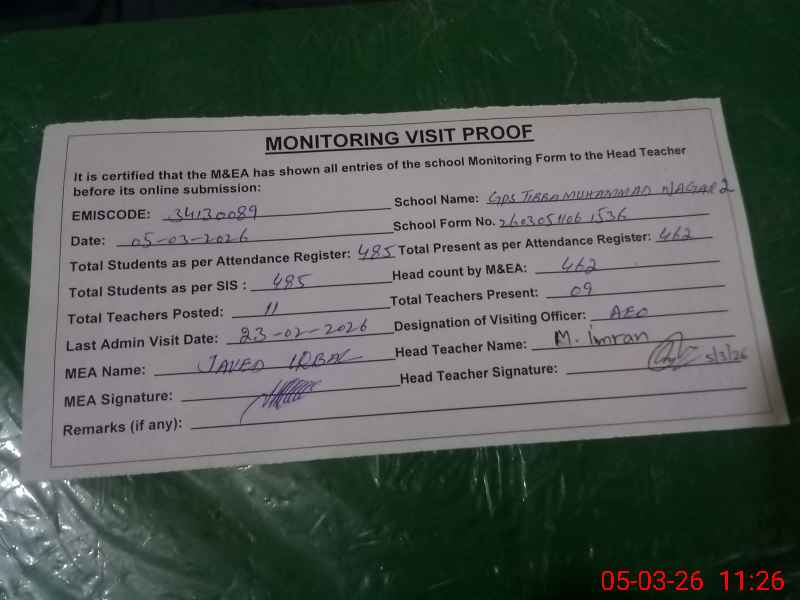 MONITORING VISIT PROOF
It is certified that the M&EA has shown all entries of the school Monitoring Form to the Head Teacher
before its online submission:
EMISCODE: 34130089 School Name: GPS TIBBA MUHAMMAD NAGAR 2
Date: 05-03-2026 School Form No. 2603051106 1536
Total Students as per Attendance Register: 485 Total Present as per Attendance Register: 462
Total Students as per SIS : 485 Head count by M&EA: 462
Total Teachers Posted: 11 Total Teachers Present: 09
Last Admin Visit Date: 23-02-2026 Designation of Visiting Officer: AEO
MEA Name: JAVED IQBAL Head Teacher Name: M. Imran
MEA Signature: Head Teacher Signature: 5/3/26
Remarks (if any):
05-03-26 11:26